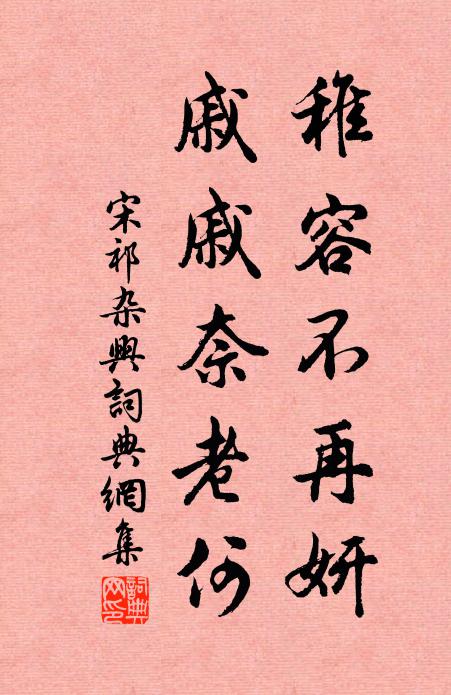 稚容不再妍
戚戚奈老何
宋祁杂興詞典網集
詞典网印